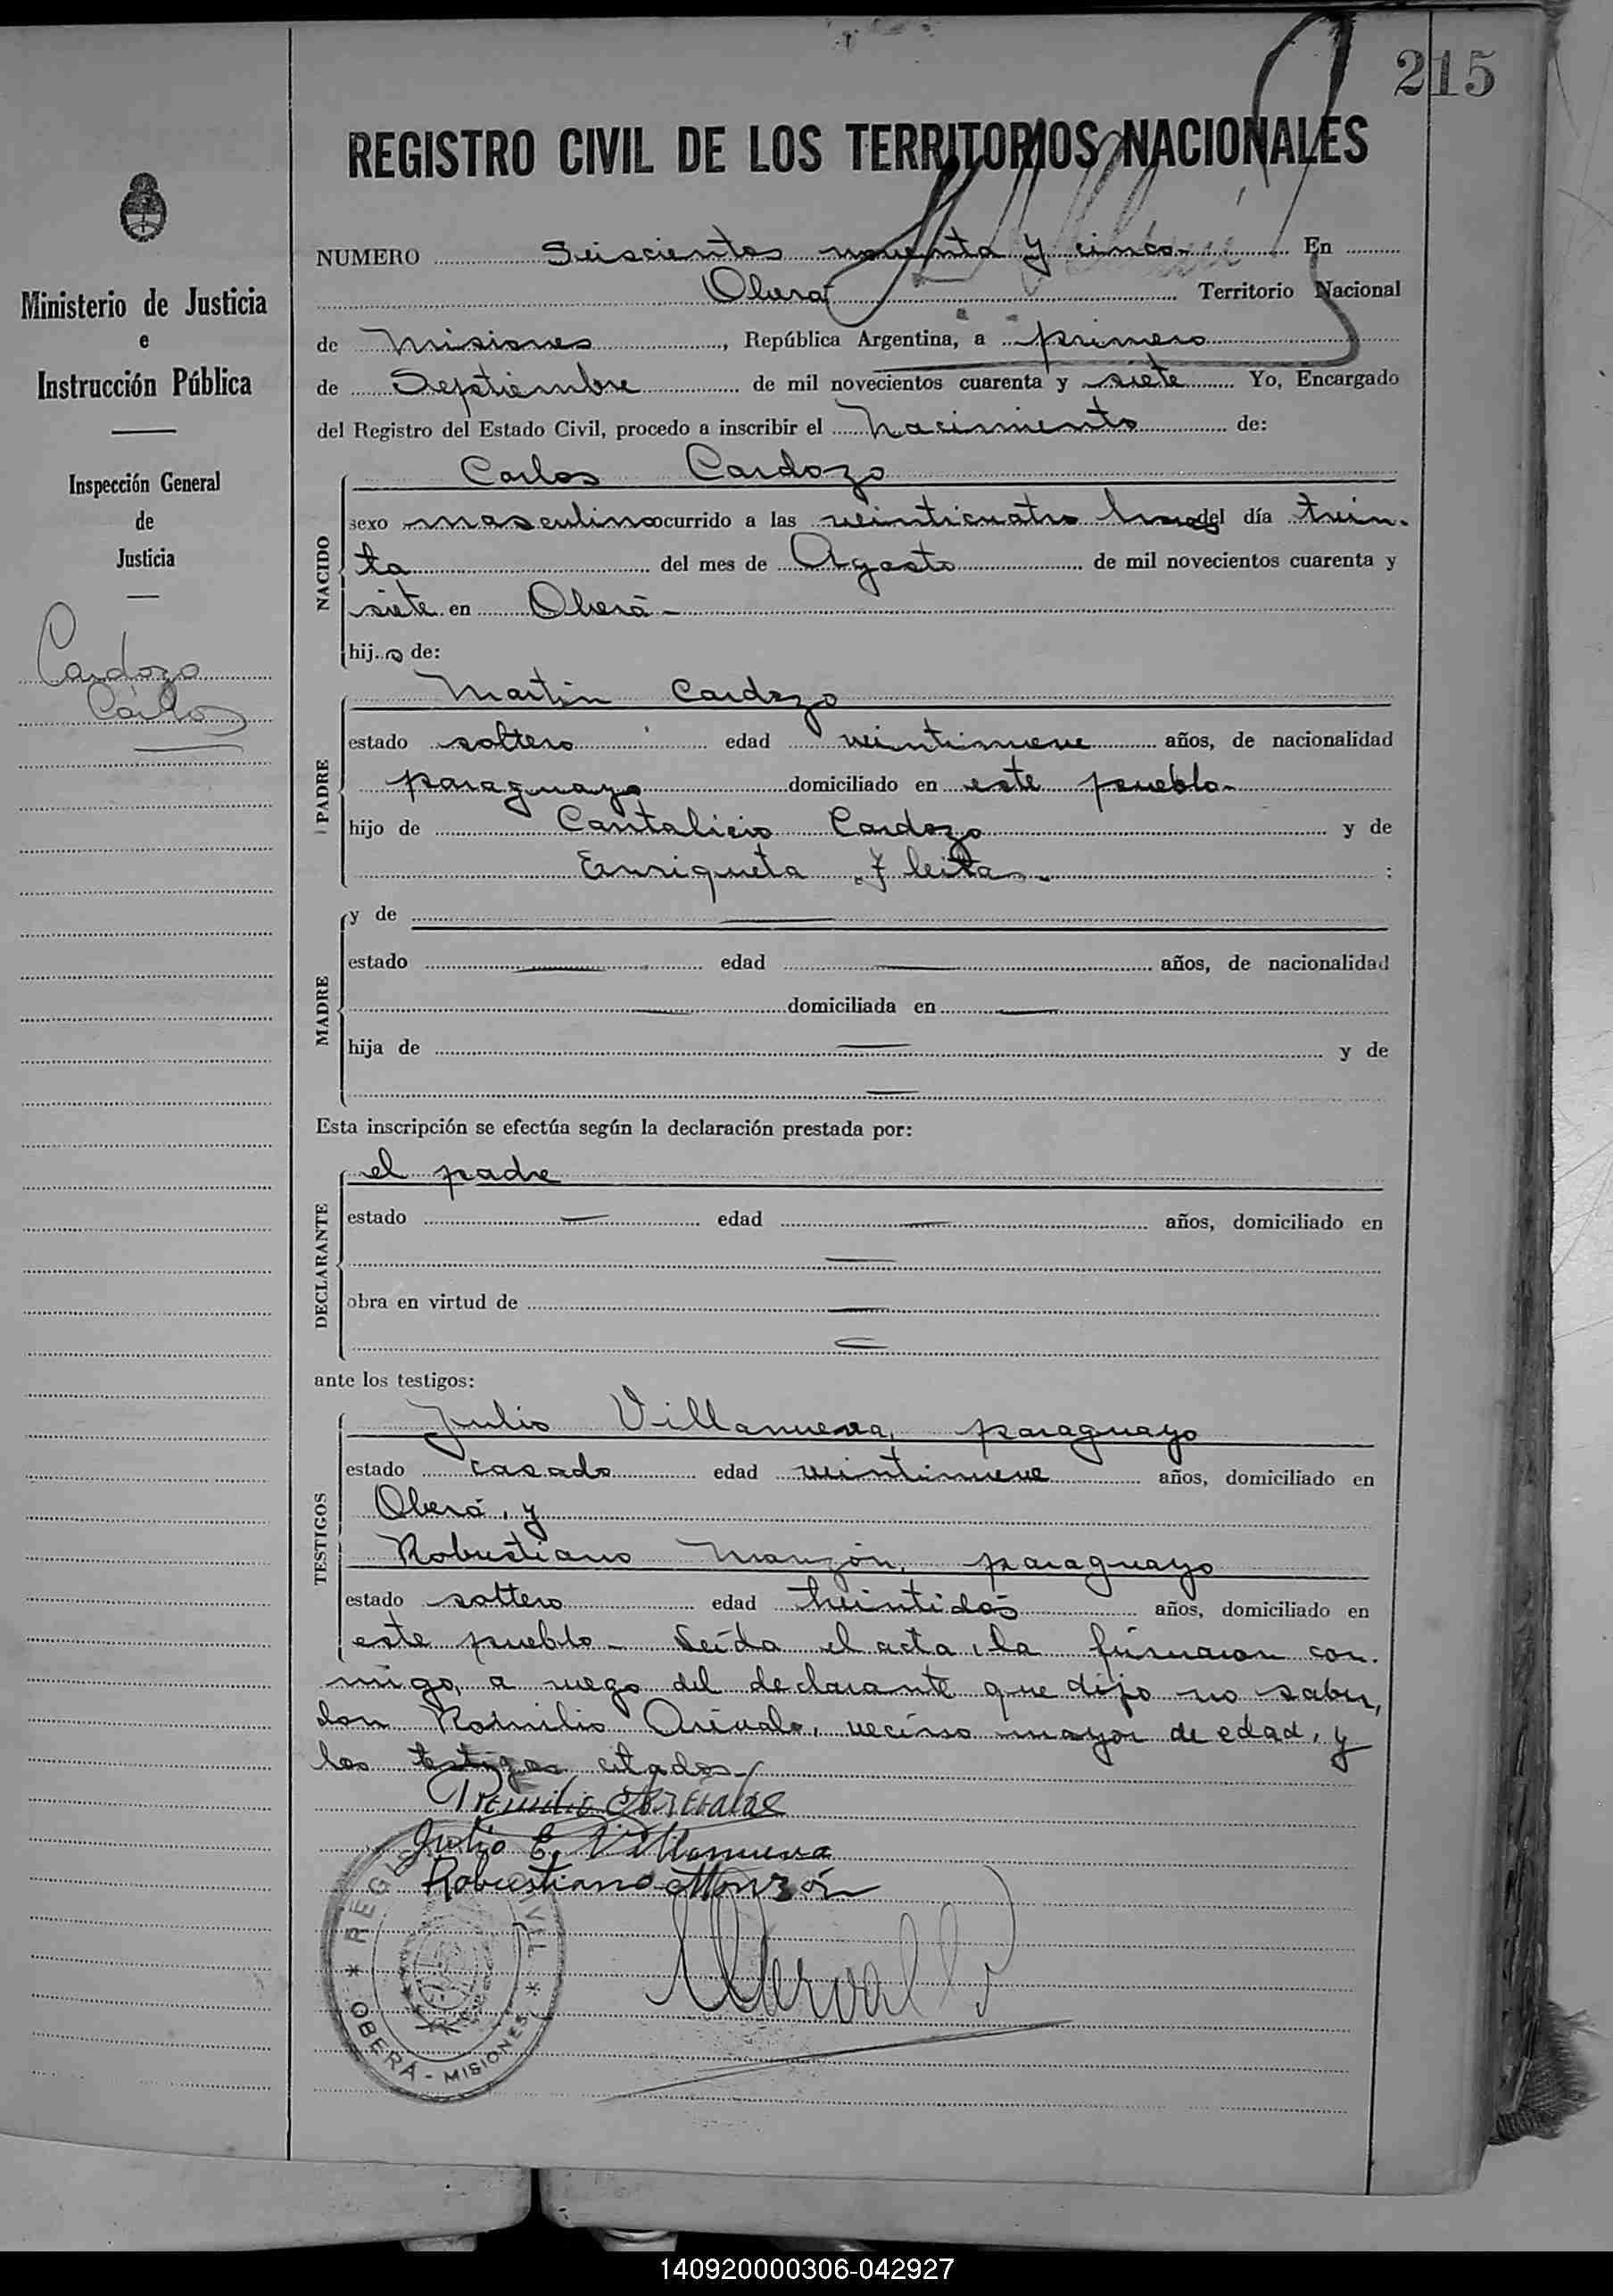 215
REGISTRO CIVIL DE LOS TERRITORIOS NACIONALES
Ministerio de Justicia
e
Instrucción Pública
Inspección General
de
Justicia
Cardozo
Carlos
NUMERO Seiscientos noventa y cinco- En
Oberá Territorio Nacional
de Misiones, República Argentina, a primero
de Septiembre de mil novecientos cuarenta y siete Yo, Encargado
del Registro del Estado Civil, procedo a inscribir el nacimiento de:
Carlos Cardozo
NACIDO
sexo masculino ocurrido a las veinticuatro horas del día trein-
ta del mes de Agosto de mil novecientos cuarenta y
siete en Oberá-
hijo de:
Martin Cardozo
PADRE
estado soltero edad veintinueve años, de nacionalidad
paraguayo domiciliado en este pueblo-
hijo de Cantalicio Cardozo y de
Enriqueta Fleitas- :
MADRE
y de
estado edad años, de nacionalidad
domiciliada en
hija de y de
Esta inscripción se efectúa según la declaración prestada por:
DECLARANTE
el padre
estado edad años, domiciliado en
obra en virtud de
ante los testigos:
TESTIGOS
Julio Villanueva, paraguayo
estado casado edad veintinueve años, domiciliado en
Oberá, y
Robustiano Monzón, paraguayo
estado soltero edad treintidós años, domiciliado en
este pueblo- Leída el acta, la firmaron con-
migo, a ruego del declarante que dijo no saber,
don Romilio Arévalo, vecino mayor de edad, y
los testigos citados-
Romilio Arévalo
Julio E. Villanueva
Robustiano Monzón
REGISTRO CIVIL
* OBERÁ - MISIONES *
140920000306-042927